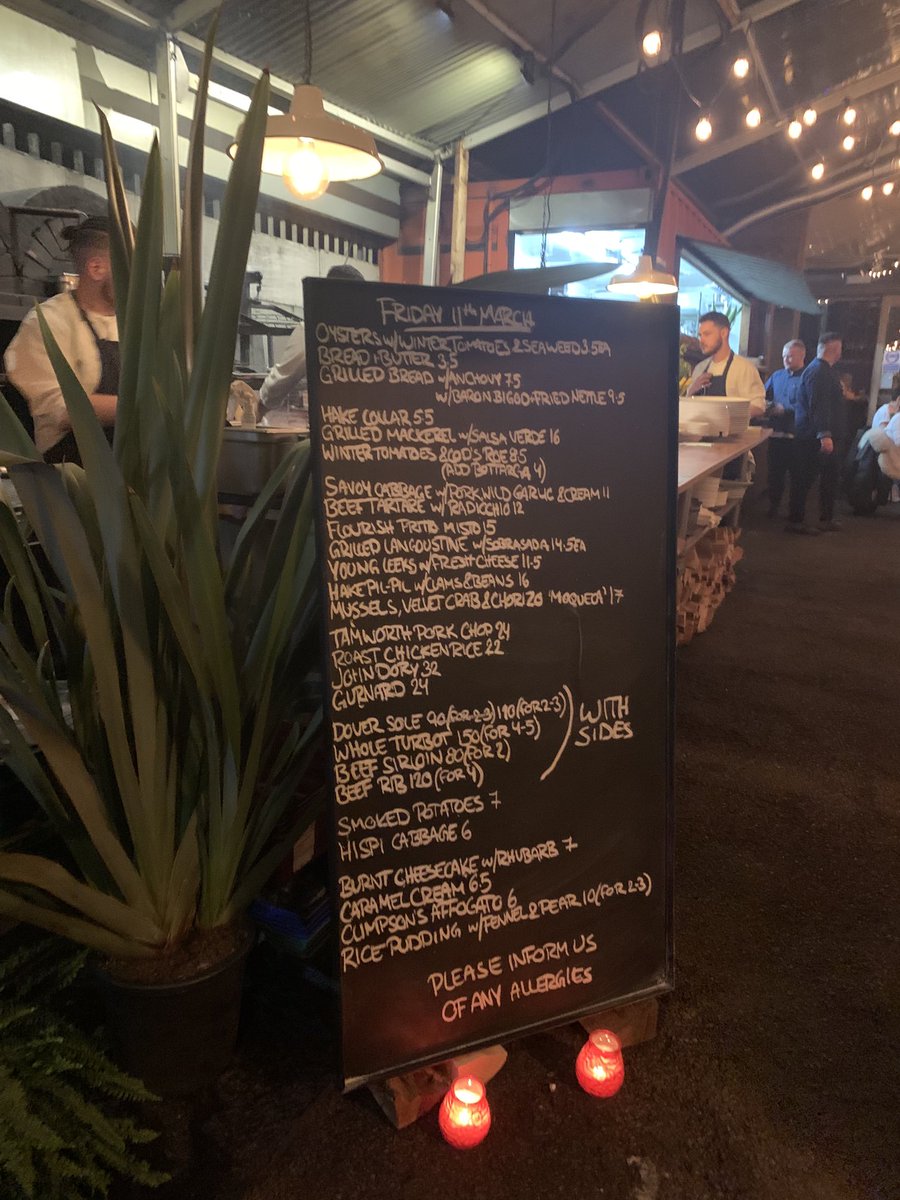 FRIDAY 11TH MARCH
OYSTERS W/ WINTER TOMATOES & SEAWEED 3.5EA
BREAD & BUTTER 3.5
GRILLED BREAD W/ANCHOVY 7.5
W/BARON BIGOD & FRIED NETTLE 9.5
HAKE COLLAR 5.5
GRILLED MACKEREL W/SALSA VERDE 16
WINTER TOMATOES & COD'S ROE 8.5
(ADD BOTTARGA 4)
SAVOY CABBAGE W/PORK, WILD GARLIC & CREAM 11
BEEF TARTARE W/RADICCHIO 12
FLOURISH FRITTO MISTO 15
GRILLED LANGOUSTINE W/SOBRASADA 14.5EA
YOUNG LEEKS W/FRESH CHEESE 11.5
HAKE PIL-PIL W/CLAMS & BEANS 16
MUSSELS, VELVET CRAB & CHORIZO 'MOQUECA' 17
TAMWORTH PORK CHOP 24
ROAST CHICKEN RICE 22
JOHN DORY 32
GURNARD 24
DOVER SOLE 90 (FOR 2-3) 110 (FOR 2-3)
WHOLE TURBOT 150 (FOR 4-5)
BEEF SIRLOIN 80 (FOR 2)
BEEF RIB 120 (FOR 4)
WITH
SIDES
SMOKED POTATOES 7
HISPI CABBAGE 6
BURNT CHEESECAKE W/RHUBARB 7
CARAMEL CREAM 6.5
CLIMPSON'S AFFOGATO 6
RICE PUDDING W/FENNEL & PEAR 10 (FOR 2-3)
PLEASE INFORM US
OF ANY ALLERGIES